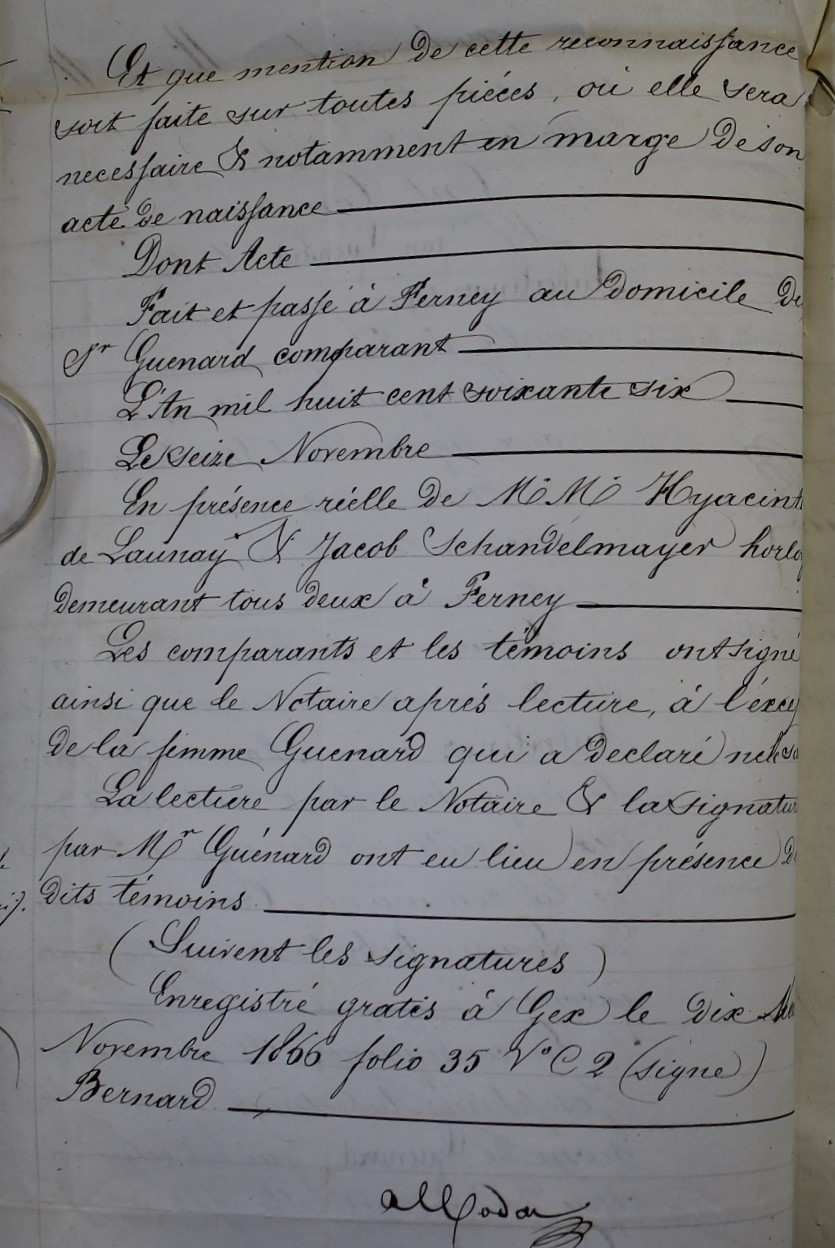 Et que mention de cette reconnaissance
soit faite sur toutes piéces, où elle sera
necessaire & notamment en marge de son
acte de naissance
Dont Acte
Fait et passé à Ferney au Domicile du
Sr Guenard comparant
L'An mil huit cent soixante six
Le seize Novembre
En présence réelle de M. M. Hyacint
de Launay & Jacob Schandelmayer horlo
demeurant tous deux à Ferney
Les comparants et les témoins ont signé
ainsi que le Notaire aprés lecture, à l'éxcep
de la femme Guenard qui a declaré ne le sa
La lecture par le Notaire & la signatur
par Mr Guénard ont eu lieu en présence de
dits témoins
(Suivent les signatures)
Enregistré gratis à Gex le dix
Novembre 1866 folio 35 Vo C 2 (signe)
Bernard